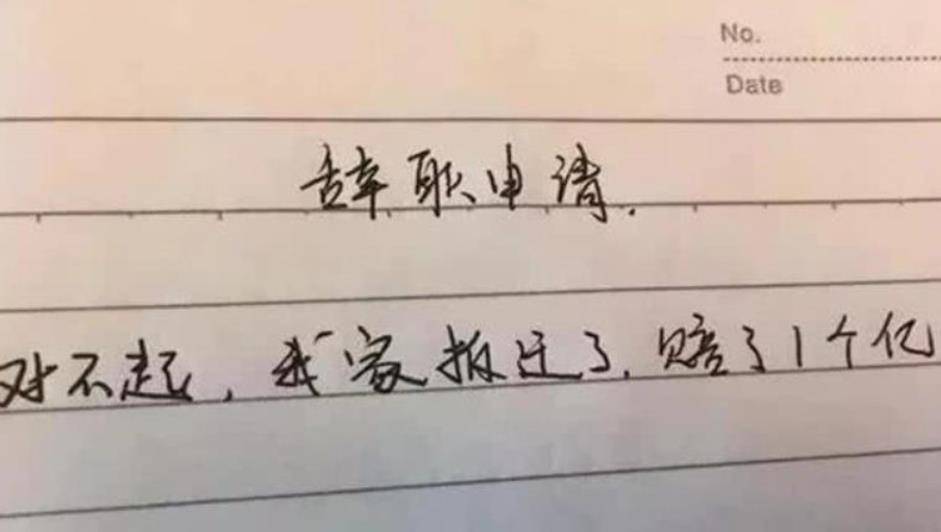 No.
Date
辞职申请.
对不起，我家拆迁了，赔了1个亿